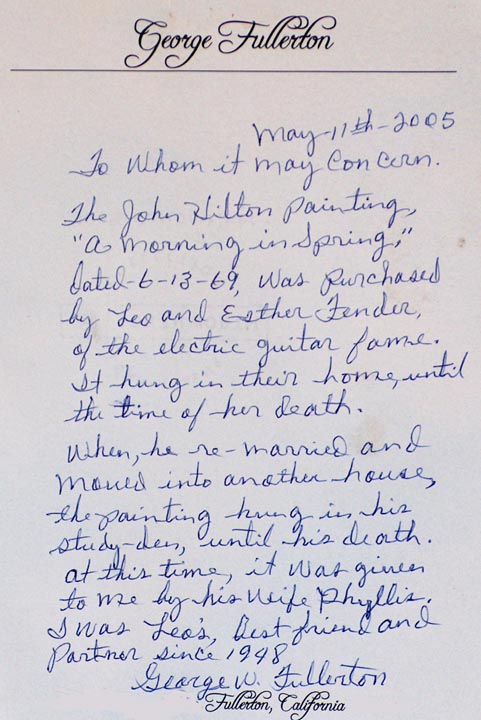 George Fullerton
May-11th-2005
To Whom it may Concern.
The John Hilton painting,
"A Morning in Spring,"
Dated-6-13-69, was purchased
by Leo and Esther Fender,
of the electric guitar fame.
It hung in their home, until
the time of her death.
When, he re-married and
moved into another house,
the painting hung in his
study-den, until his death.
at this time, it was given
to me by his wife Phyllis.
I was Leo's, Best friend and
Partner since 1948
George W. Fullerton
Fullerton, California